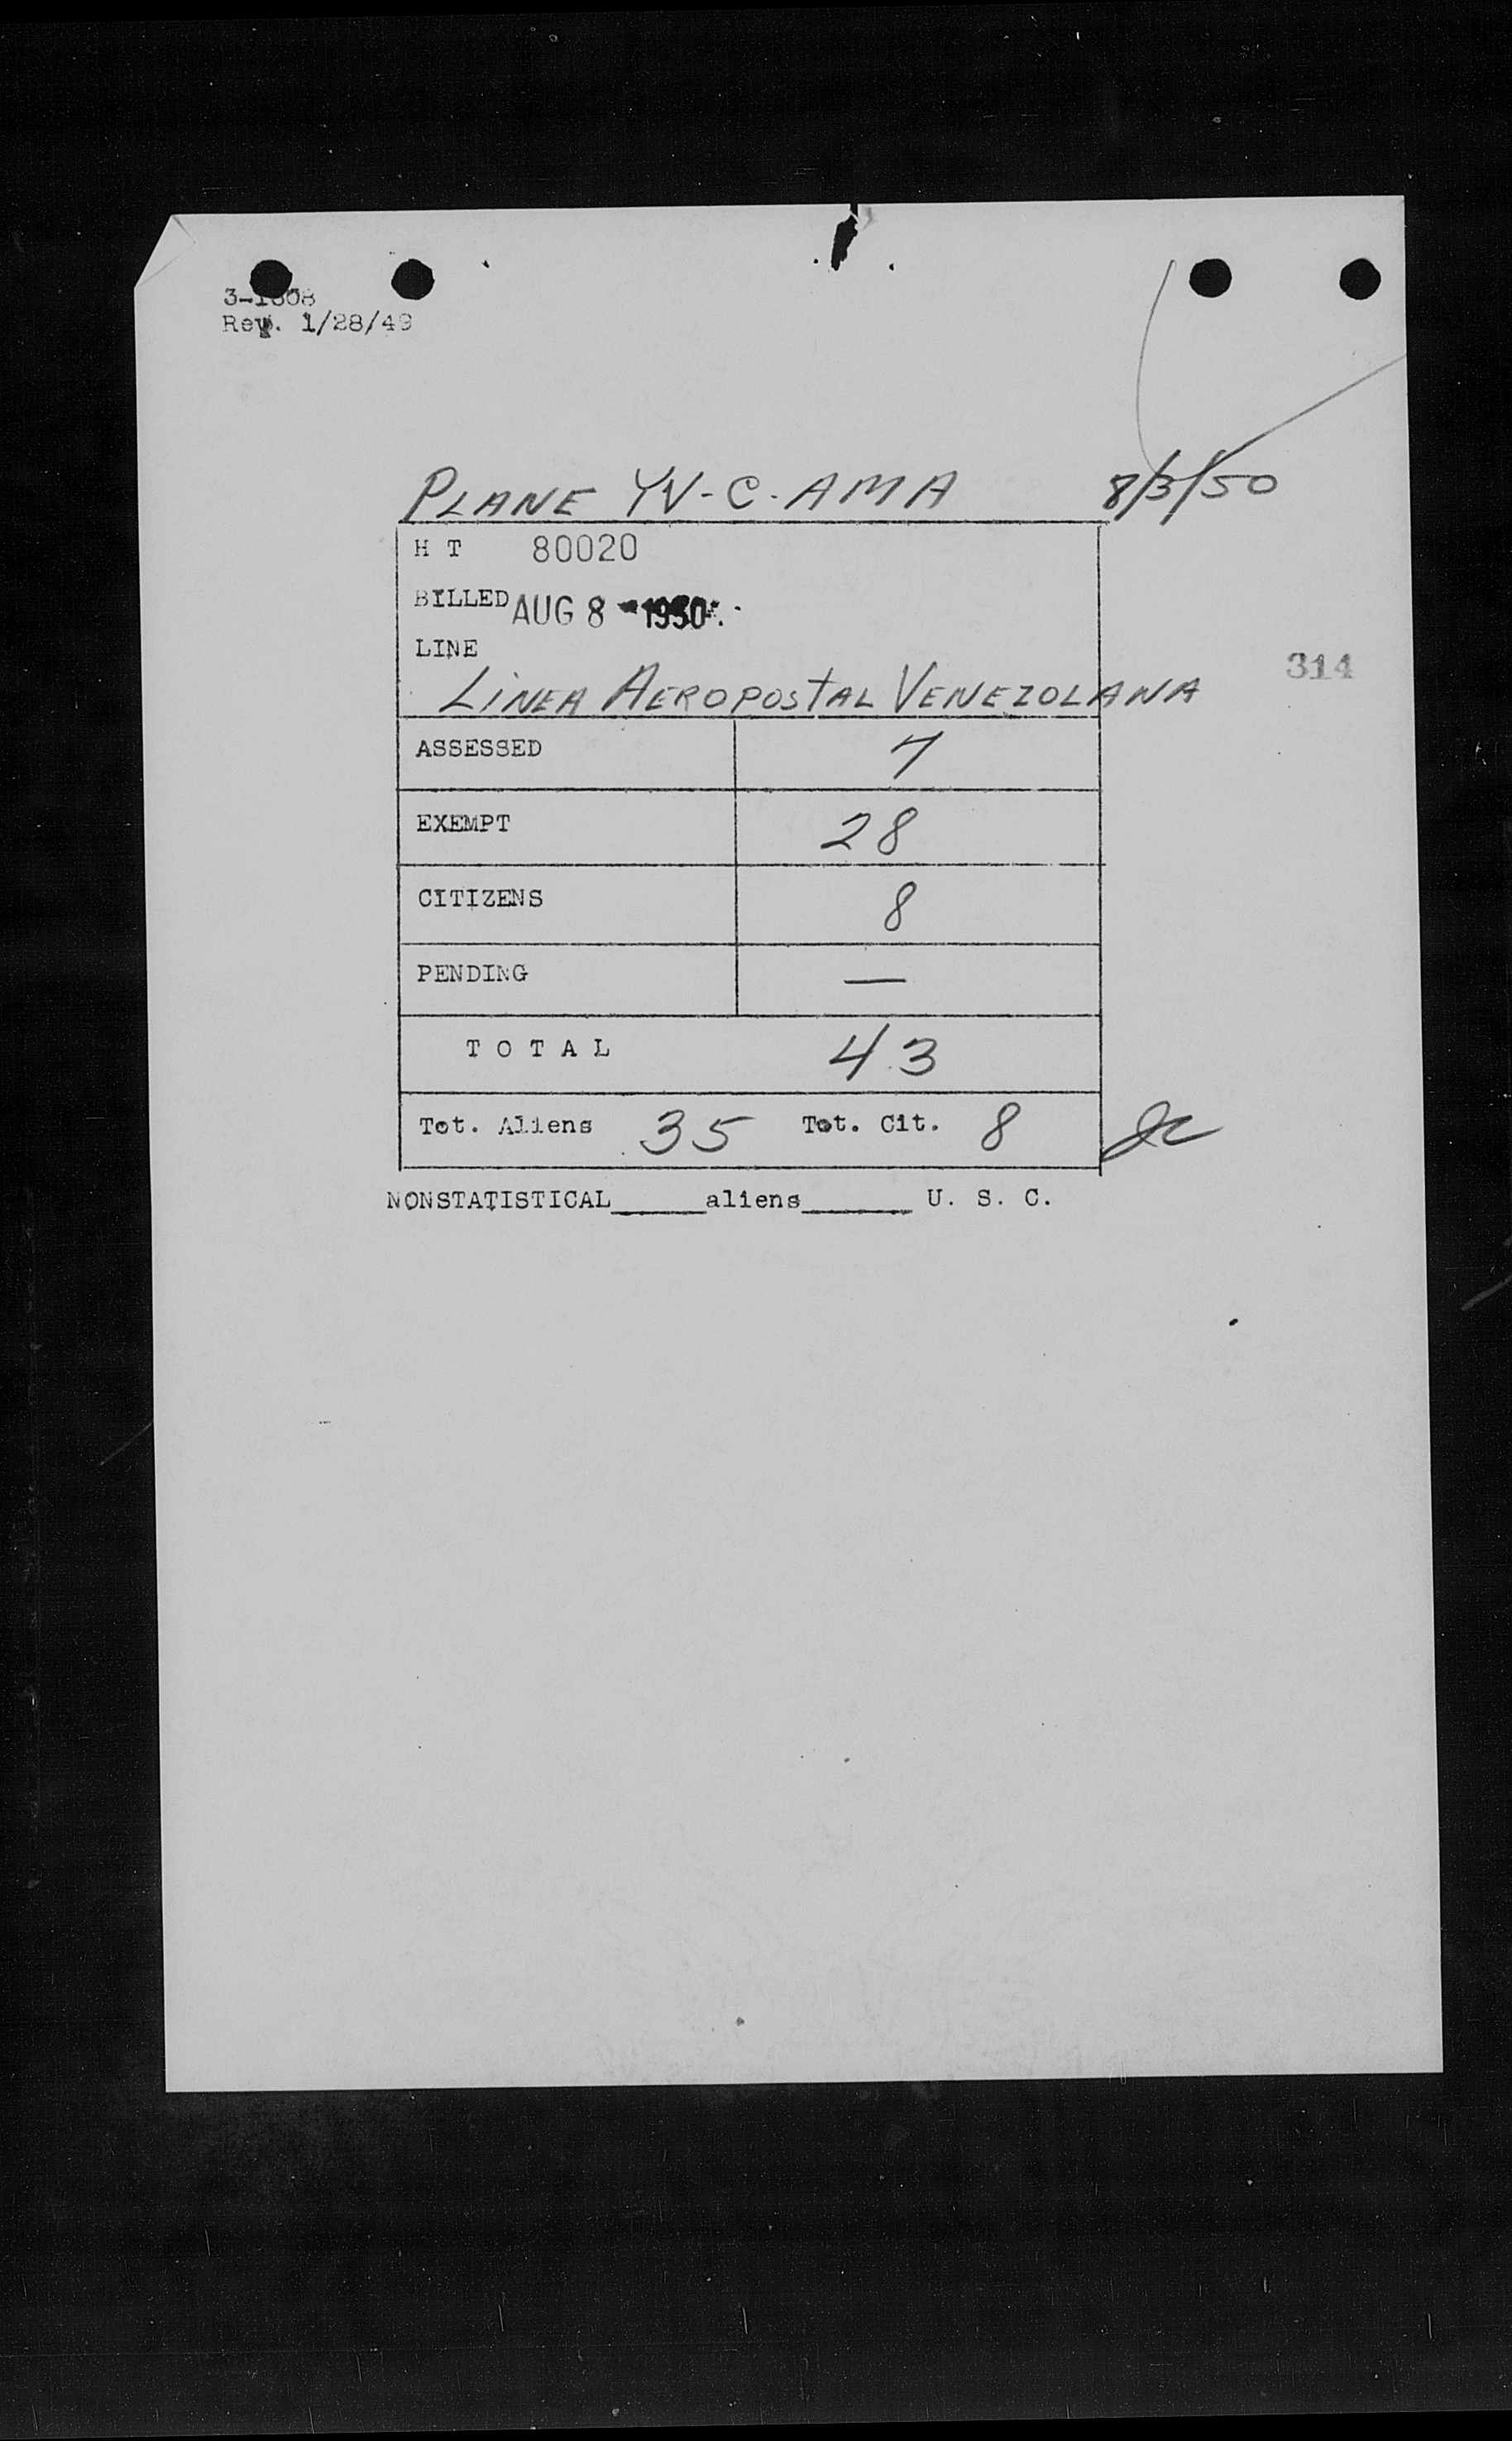 Rev. 1/28/49
PLANE YV-C-AMA 8/3/50
H T 80020
BILLED AUG 8 - 1950
LINE
314
LINEA AEROPOSTAL VENEZOLANA
ASSESSED 7
EXEMPT 28
CITIZENS 8
PENDING —
TOTAL 43
Tot. Aliens 35 Tot. Cit. 8
NONSTATISTICAL_____aliens______ U. S. C.